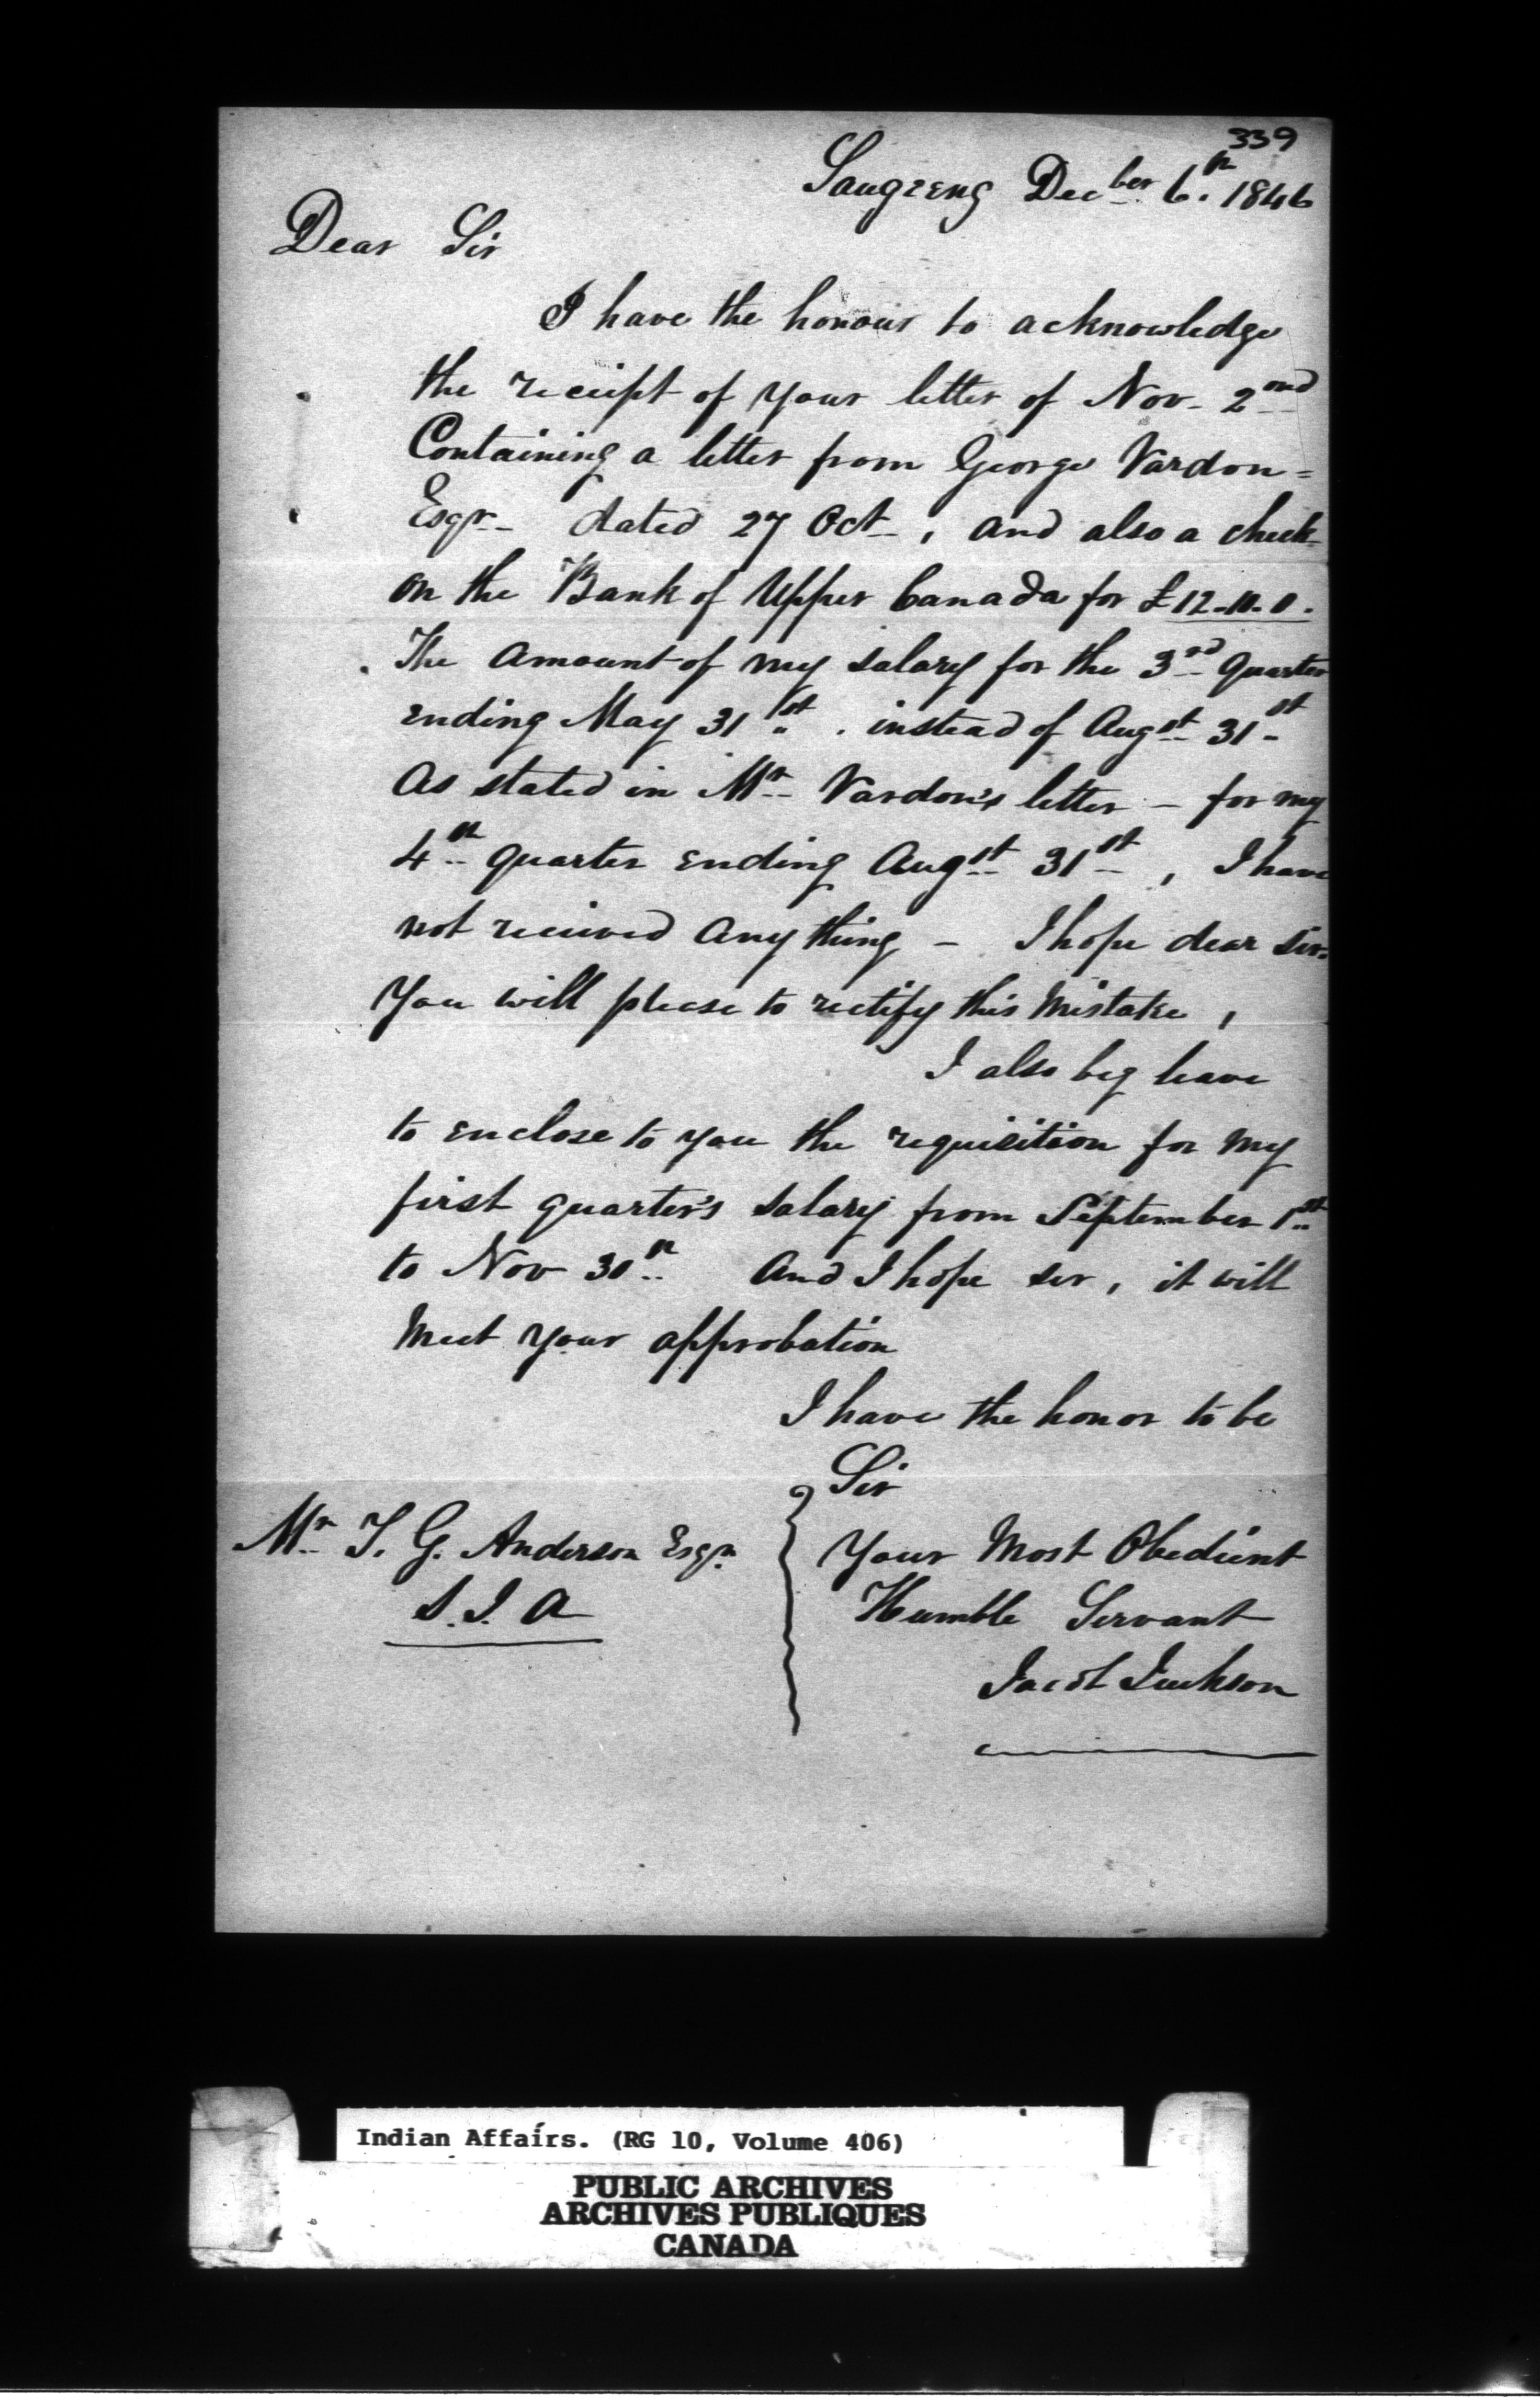 339
Saugeeng Decber 6th 1846
Dear Sir
I have the honour to acknowledge
the receipt of your letter of Nov- 2ond
Containing a letter from George Vardon =
Esqr- dated 27 Oct-, and also a check
on the Bank of Upper Canada for £12-10-0.
The amount of my salary for the 3rd quarter
ending May 31st. instead of Augst 31st
As stated in Mr Vardon's letter - for my
4th quarter ending Augst 31st, I have
not recieved any thing - I hope dear sir.
You will please to rectify this mistake,
I also beg leave
to enclose to you the requisition for my
first quarter's salary from September 1st
to Nov 30th And I hope sir, it will
meet your approbation
I have the honor to be
Sir
Your Most Obedient
Humble Servant
Jacob Jackson
Mr T. G. Anderson Esqr
S. I. A
Indian Affairs. (RG 10, Volume 406)
PUBLIC ARCHIVES
ARCHIVES PUBLIQUES
CANADA